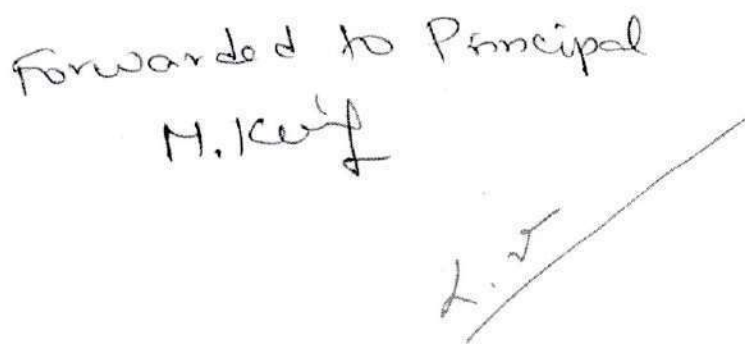 Forwarded to Principal
M.